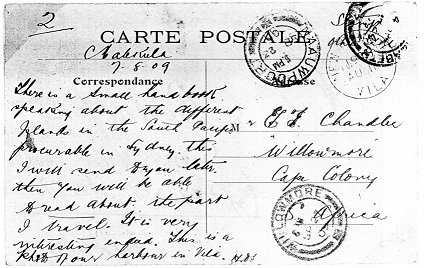 2
CARTE POSTALE
Malekula
7-8-09
Correspondance
There is a small handbook
speaking about the different
Islands in the South Pacific
procurable in Sydney. this
I will send to you later.
then you will be able
to read about the part
I travel. It is very
interesting indeed. This is a
Photo of our harbour in Vila.
M
Chandler
Willowmore
Cape Colony
Africa
NAAUWPOORT
VILA
WILLOWMORE